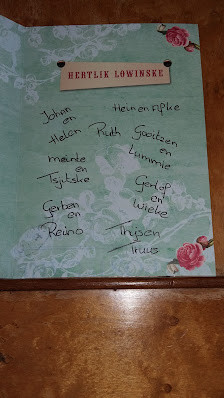 HERTLIK LOWINSKE
Johan
en
Helen
Hein en Afke
Ruth
Gooitzen
en
Lummie
meinte
en
Tsjitske
Gerlof
en
Wieke
Gerben
en
Reino
Thijsen
Truus